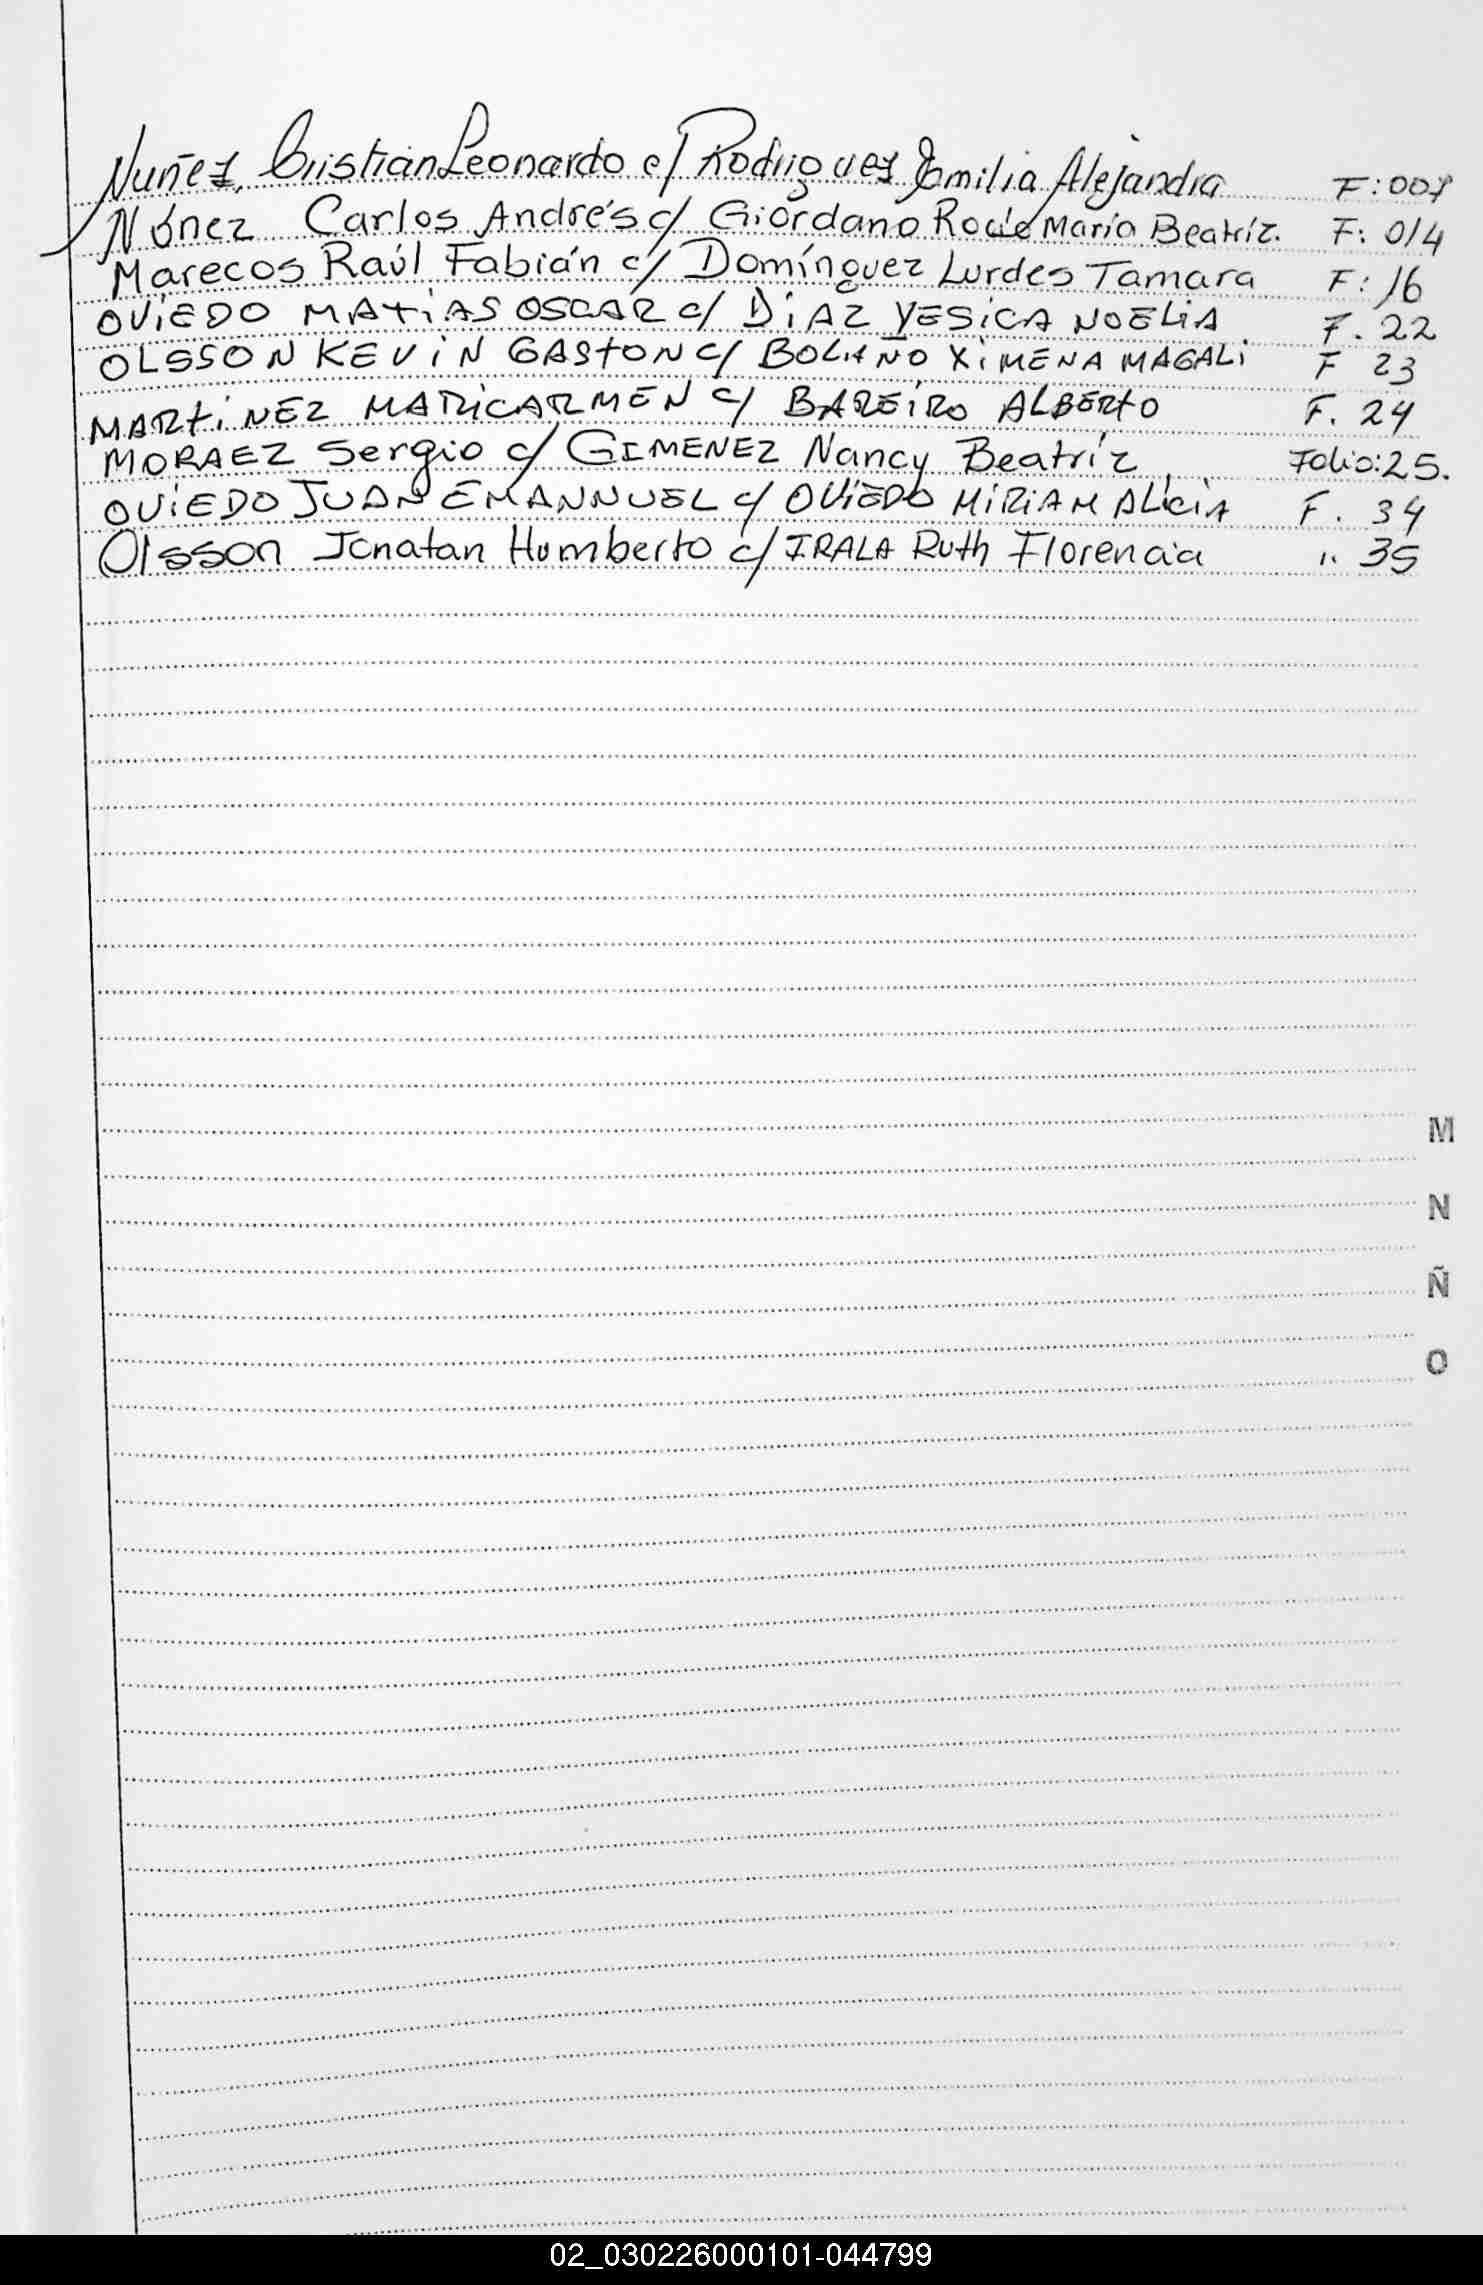 Nuñez, Cristian Leonardo c/ Rodriguez Jemilia Alejandra F:007
Núnez Carlos Andrés c/ Giordano Rocío María Beatriz. F: 014
Marecos Raúl Fabián c/ Domínguez Lurdes Tamara F: 16
OVIEDO MATIAS OSCAR c/ DIAZ YESICA NOELIA F. 22
OLSSON KEVIN GASTON c/ BOLAÑO XIMENA MAGALI F 23
MARTINEZ MARICARMEN c/ BAREIRO ALBERTO F. 24
MORAEZ Sergio c/ GIMENEZ Nancy Beatríz Folio:25.
OVIEDO JUAN EMANNUEL c/ OVIEDO MIRIAM ALICIA F. 34
Olsson Jonatan Humberto c/ IRALA Ruth Florencia " 35
M
N
Ñ
O
02_030226000101-044799